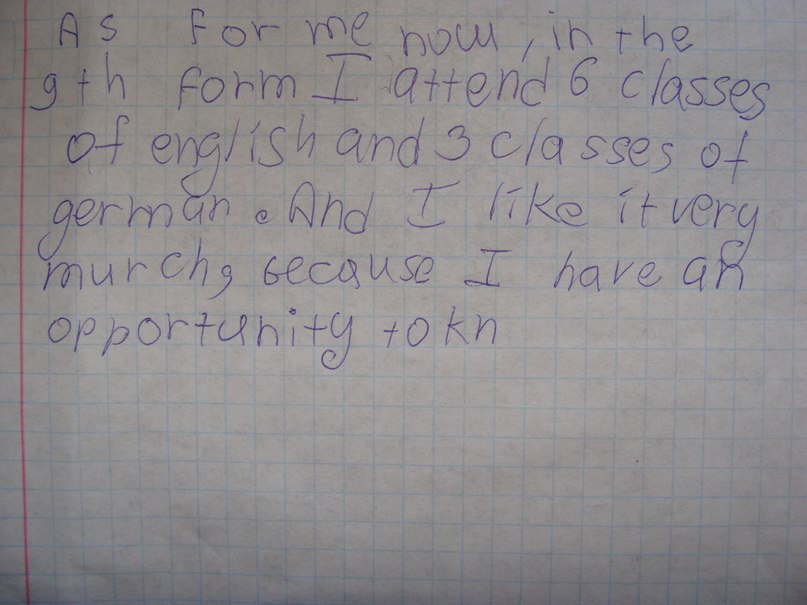 As for me now, in the
9th form I attend 6 classes
of english and 3 classes of
german. And I like it very
murch, because I have an
opportunity to kn